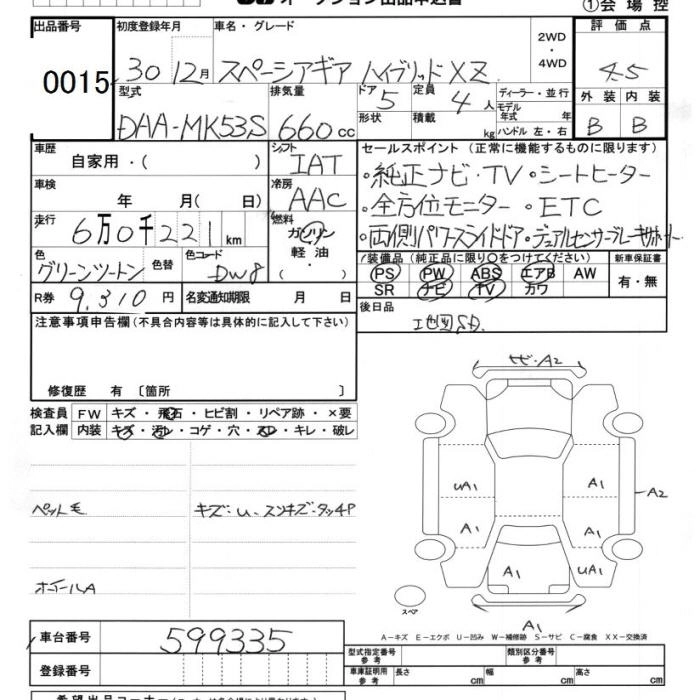 オークション出品申込書 ①会場控
出品番号 初度登録年月 車名・グレード 評価点
0015 30 12月 スペーシアギア ハイブリッドXZ 2WD ・ 4WD 4.5
型式 排気量 ドア 定員 ディーラー・並行 外装 内装
DAA-MK53S 660cc 5 4人 モデル年式 年式 B B
形状 積載 kg ハンドル 左・右
車歴 自家用・( ) シフト IAT セールスポイント (正常に機能するものに限ります)
車検 年 月( 日) 冷房 AAC ・純正ナビ・TV・シートヒーター
・全方位モニター・ETC
走行 6万0千221km 燃料 ガソリン 軽油 ・両側パワースライドドア・デュアルセンサーブレーキサポート
色 グリーンツートン 色替 色コード DW8 装備品 (純正品に限り○をつけてください) 新車保証書
PS PW ABS エアB AW 有・無
SR ナビ TV カワ
R券 9,310円 名変通知期限 月 日 後日品
地図SD.
注意事項申告欄(不具合内容等は具体的に記入して下さい)
修復歴 有 〔箇所 〕
検査員 FW キズ・飛石・ヒビ割・リペア跡・×要
記入欄 内装 キズ・汚レ・コゲ・穴・スレ・キレ・破レ
サビ・A2
UA1 A1 A2
ペット毛 キズ・U・スンキズ・タッチP
A1 A1
A1 UA1
ホイールA
スペア A1
A－キズ E－エクボ U－凹み W－補修跡 S－サビ C－腐食 XX－交換済
車台番号 599335 型式指定番号 参考 類別区分番号 参考
登録番号 車庫証明用 参考 長さ cm 幅 cm 高さ cm